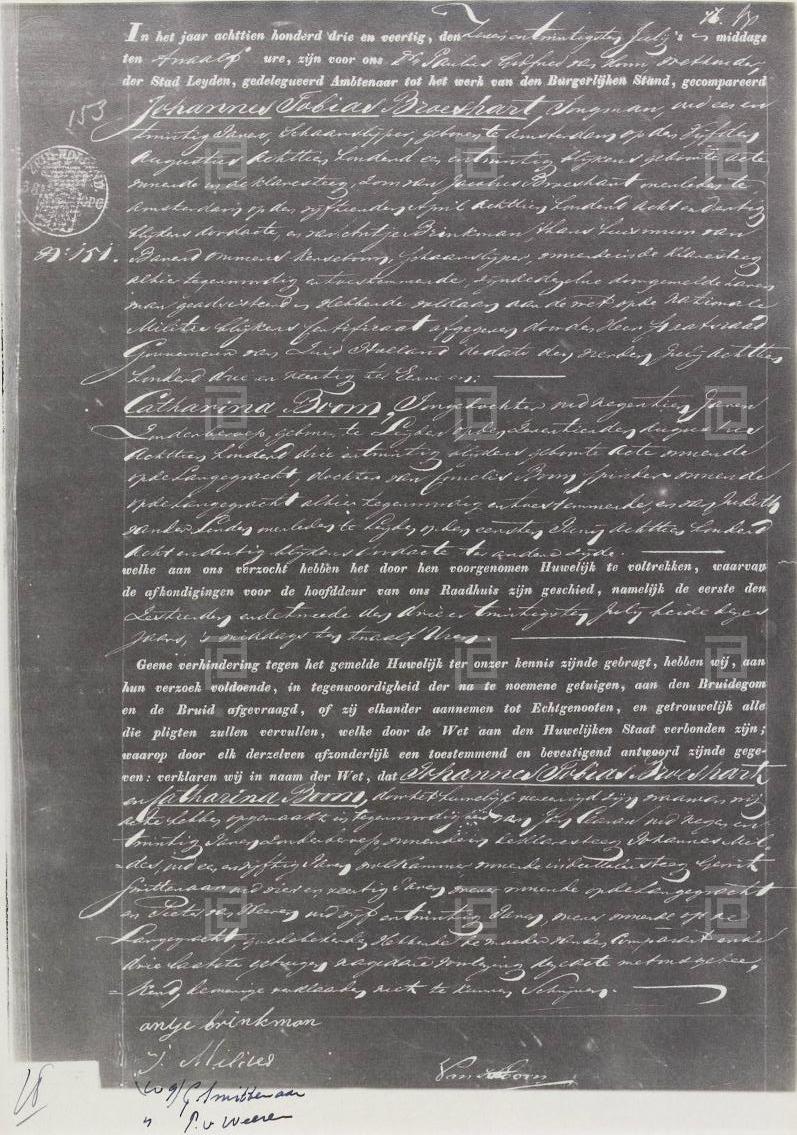 76. 
In het jaar achttien honderd drie en veertig, den Zes en twintigsten Julij 's middags
ten twaalf ure, zijn voor ons Paulus van
der Stad Leyden, gedelegueerd Ambtenaar tot het werk van den Burgerlijken Stand, gecompareerd
153
Johannes Tobias Broeshart, Jongman, oud een en
twintig Jaren, Schaarslijper, geboren te Amsterdam op den vijfden
Augustus Achttien honderd een en twintig blijkens geboorte acte
wonende in de Klaresteeg, Zoon van Jacobus Broeshart overleden te
Amsterdam op den vijftienden April Achttien honderd acht en dertig
No. 151.
blijkens doodacte, en van Antje Brinkman, thans huisvrouw van
Barend Kerseboom, Schaarslijper, wonende in de Klaresteeg
alhier tegenwoordig en toestemmende, zijnde de gemelde
man geadsisteerd en hebbende voldaan aan de wet op de Nationale
Militie blijkens Certificaat afgegeven door den Heer Staatsraad
Gouverneur van Zuid Holland de dato den Julij Achttien
honderd drie en veertig ter Eenre en:
Catharina Boom, Jongedochter oud negentien Jaren
Zonder beroep, geboren te Leyden op den Augustus
Achttien honderd drie en twintig blijkens geboorte acte wonende
op de Langegracht, dochter van Cornelis Boom, wonende
op de Langegracht alhier tegenwoordig en toestemmende, en van Judith
van der Linden overleden te Leyden op den eersten Achttien honderd
acht en dertig blijkens doodacte ter andere zijde.
welke aan ons verzocht hebben het door hen voorgenomen Huwelijk te voltrekken, waarvan
de afkondigingen voor de hoofddeur van ons Raadhuis zijn geschied, namelijk de eerste den
Zestienden en de tweede den drie en twintigsten Julij beide dezes
Jaars, 's middags ten twaalf Uren.
Geene verhindering tegen het gemelde Huwelijk ter onzer kennis zijnde gebragt, hebben wij, aan
hun verzoek voldoende, in tegenwoordigheid der na te noemene getuigen, aan den Bruidegom
en de Bruid afgevraagd, of zij elkander aannemen tot Echtgenooten, en getrouwelijk alle
die pligten zullen vervullen, welke door de Wet aan den Huwelijken Staat verbonden zijn;
waarop door elk derzelven afzonderlijk een toestemmend en bevestigend antwoord zijnde gege-
ven: verklaren wij in naam der Wet, dat Johannes Tobias Broeshart
en Catharina Boom, door het huwelijk vereenigd zijn, waarvan wij
acte hebben opgemaakt in tegenwoordigheid van oud negen en
twintig Jaren Zonder beroep wonende in de Klaresteeg, Johannes
oud een en vijftig Jaren, wonende in de Gerrit
Smittenaar oud vier en veertig Jaren, wever, wonende op de Langegracht
en Pieter van Weeren oud vijf en twintig Jaren, wever wonende op de
Langegracht, goede bekenden hebbende de moeder van den Comparant en de
drie laatste getuigen na gedane voorlezing deze acte met ons getee-
kend, de overige verklaarden niet te kunnen Schrijven.
antje brinkman
J.
(w g) G Smittenaar
" P. v Weeren
18